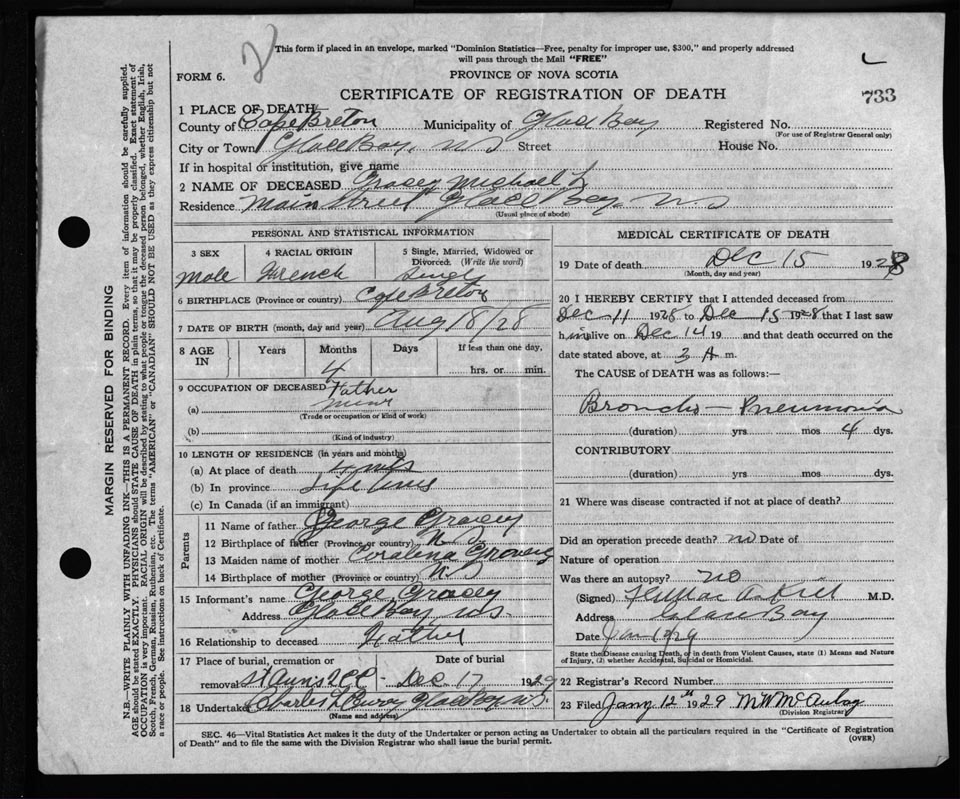 This form if placed in an envelope, marked "Dominion Statistics—Free, penalty for improper use, $300," and properly addressed
will pass through the Mail "FREE"
FORM 6.
PROVINCE OF NOVA SCOTIA
CERTIFICATE OF REGISTRATION OF DEATH
733
1 PLACE OF DEATH
County of Cape Breton Municipality of Glace Bay Registered No.
(For use of Registrar General only)
City or Town Glace Bay, N S Street House No.
If in hospital or institution, give name
2 NAME OF DECEASED Gracey Michael
Residence Main Street Glace Bay, N S
(Usual place of abode)
PERSONAL AND STATISTICAL INFORMATION
3 SEX
4 RACIAL ORIGIN
5 Single, Married, Widowed or Divorced. (Write the word)
Male French Single
6 BIRTHPLACE (Province or country) Cape Breton
7 DATE OF BIRTH (month, day and year) Aug 18/28
8 AGE IN Years Months Days If less than one day.
4 hrs. or min.
9 OCCUPATION OF DECEASED Father
(a) Miner
(Trade or occupation or kind of work)
(b)
(Kind of industry)
10 LENGTH OF RESIDENCE (in years and months)
(a) At place of death 4 mts
(b) In province Life time
(c) In Canada (if an immigrant)
Parents
11 Name of father George Gracey
12 Birthplace of father (Province or country) N S
13 Maiden name of mother
14 Birthplace of mother (Province or country) N S
15 Informant's name George Gracey
Address Glace Bay, N S.
16 Relationship to deceased Father
17 Place of burial, cremation or Date of burial
removal St Anns Dec 17 1929
18 Undertaker Charles Glace Bay N S.
(Name and address)
MEDICAL CERTIFICATE OF DEATH
19 Date of death Dec 15 1928
(Month, day and year)
20 I HEREBY CERTIFY that I attended deceased from
Dec 11 1928 to Dec 15 1928 that I last saw
him alive on Dec 14 19 and that death occurred on the
date stated above, at 3 A m.
The CAUSE of DEATH was as follows:—
Broncho - Pneumonia
(duration) yrs mos 4 dys.
CONTRIBUTORY
(duration) yrs mos dys.
21 Where was disease contracted if not at place of death?
Did an operation precede death? no Date of
Nature of operation
Was there an autopsy? no
(Signed) M.D.
Address Glace Bay
Date Jan 1929
State the Disease causing Death, or in death from Violent Causes, state (1) Means and Nature of Injury, (2) whether Accidental, Suicidal or Homicidal.
22 Registrar's Record Number
23 Filed Jany 12th 1929 M W McAulay
(Division Registrar)
SEC. 46—Vital Statistics Act makes it the duty of the Undertaker or person acting as Undertaker to obtain all the particulars required in the "Certificate of Registration
of Death" and to file the same with the Division Registrar who shall issue the burial permit.
(OVER)
MARGIN RESERVED FOR BINDING
N.B.—WRITE PLAINLY WITH UNFADING INK—THIS IS A PERMANENT RECORD. Every item of information should be carefully supplied.
AGE should be stated EXACTLY. PHYSICIANS should STATE CAUSE OF DEATH in plain terms, so that it may be properly classified. Exact statement of
OCCUPATION is very important. RACIAL ORIGIN will be described by stating to what people or tongue the deceased person belonged, whether English, Irish,
Scotch, French, German, Russian, Ruthenian, etc. The terms "AMERICAN" or "CANADIAN" SHOULD NOT BE USED as they express citizenship but not
a race or people. See instructions on back of Certificate.